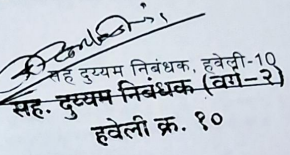 सह दुय्यम निबंधक, हवेली-10
सह. दुय्यम निबंधक (वर्ग-२)
हवेली क्र. १०